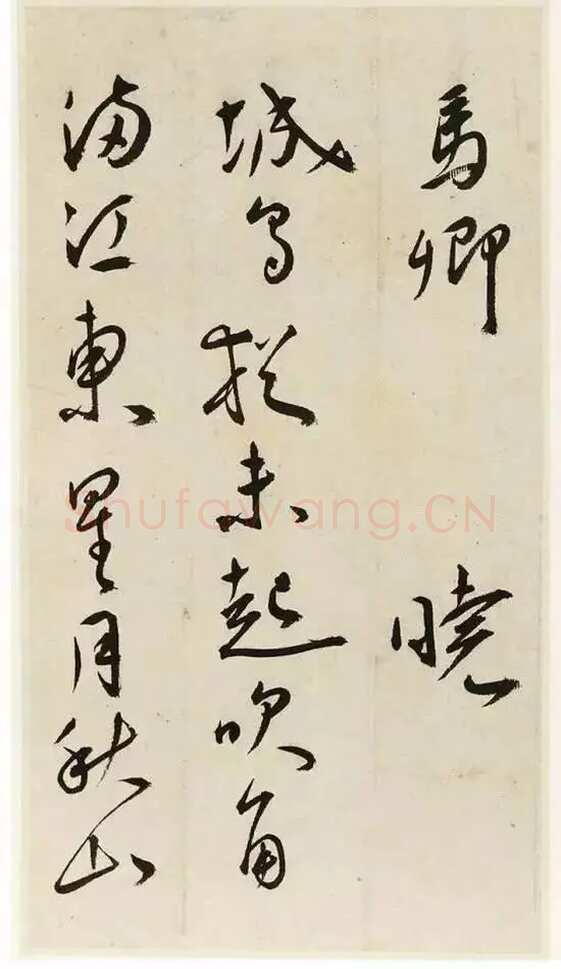 馬卿 曉
城烏猶未起吹角
滿江東星月秋山
Shufawang.CN